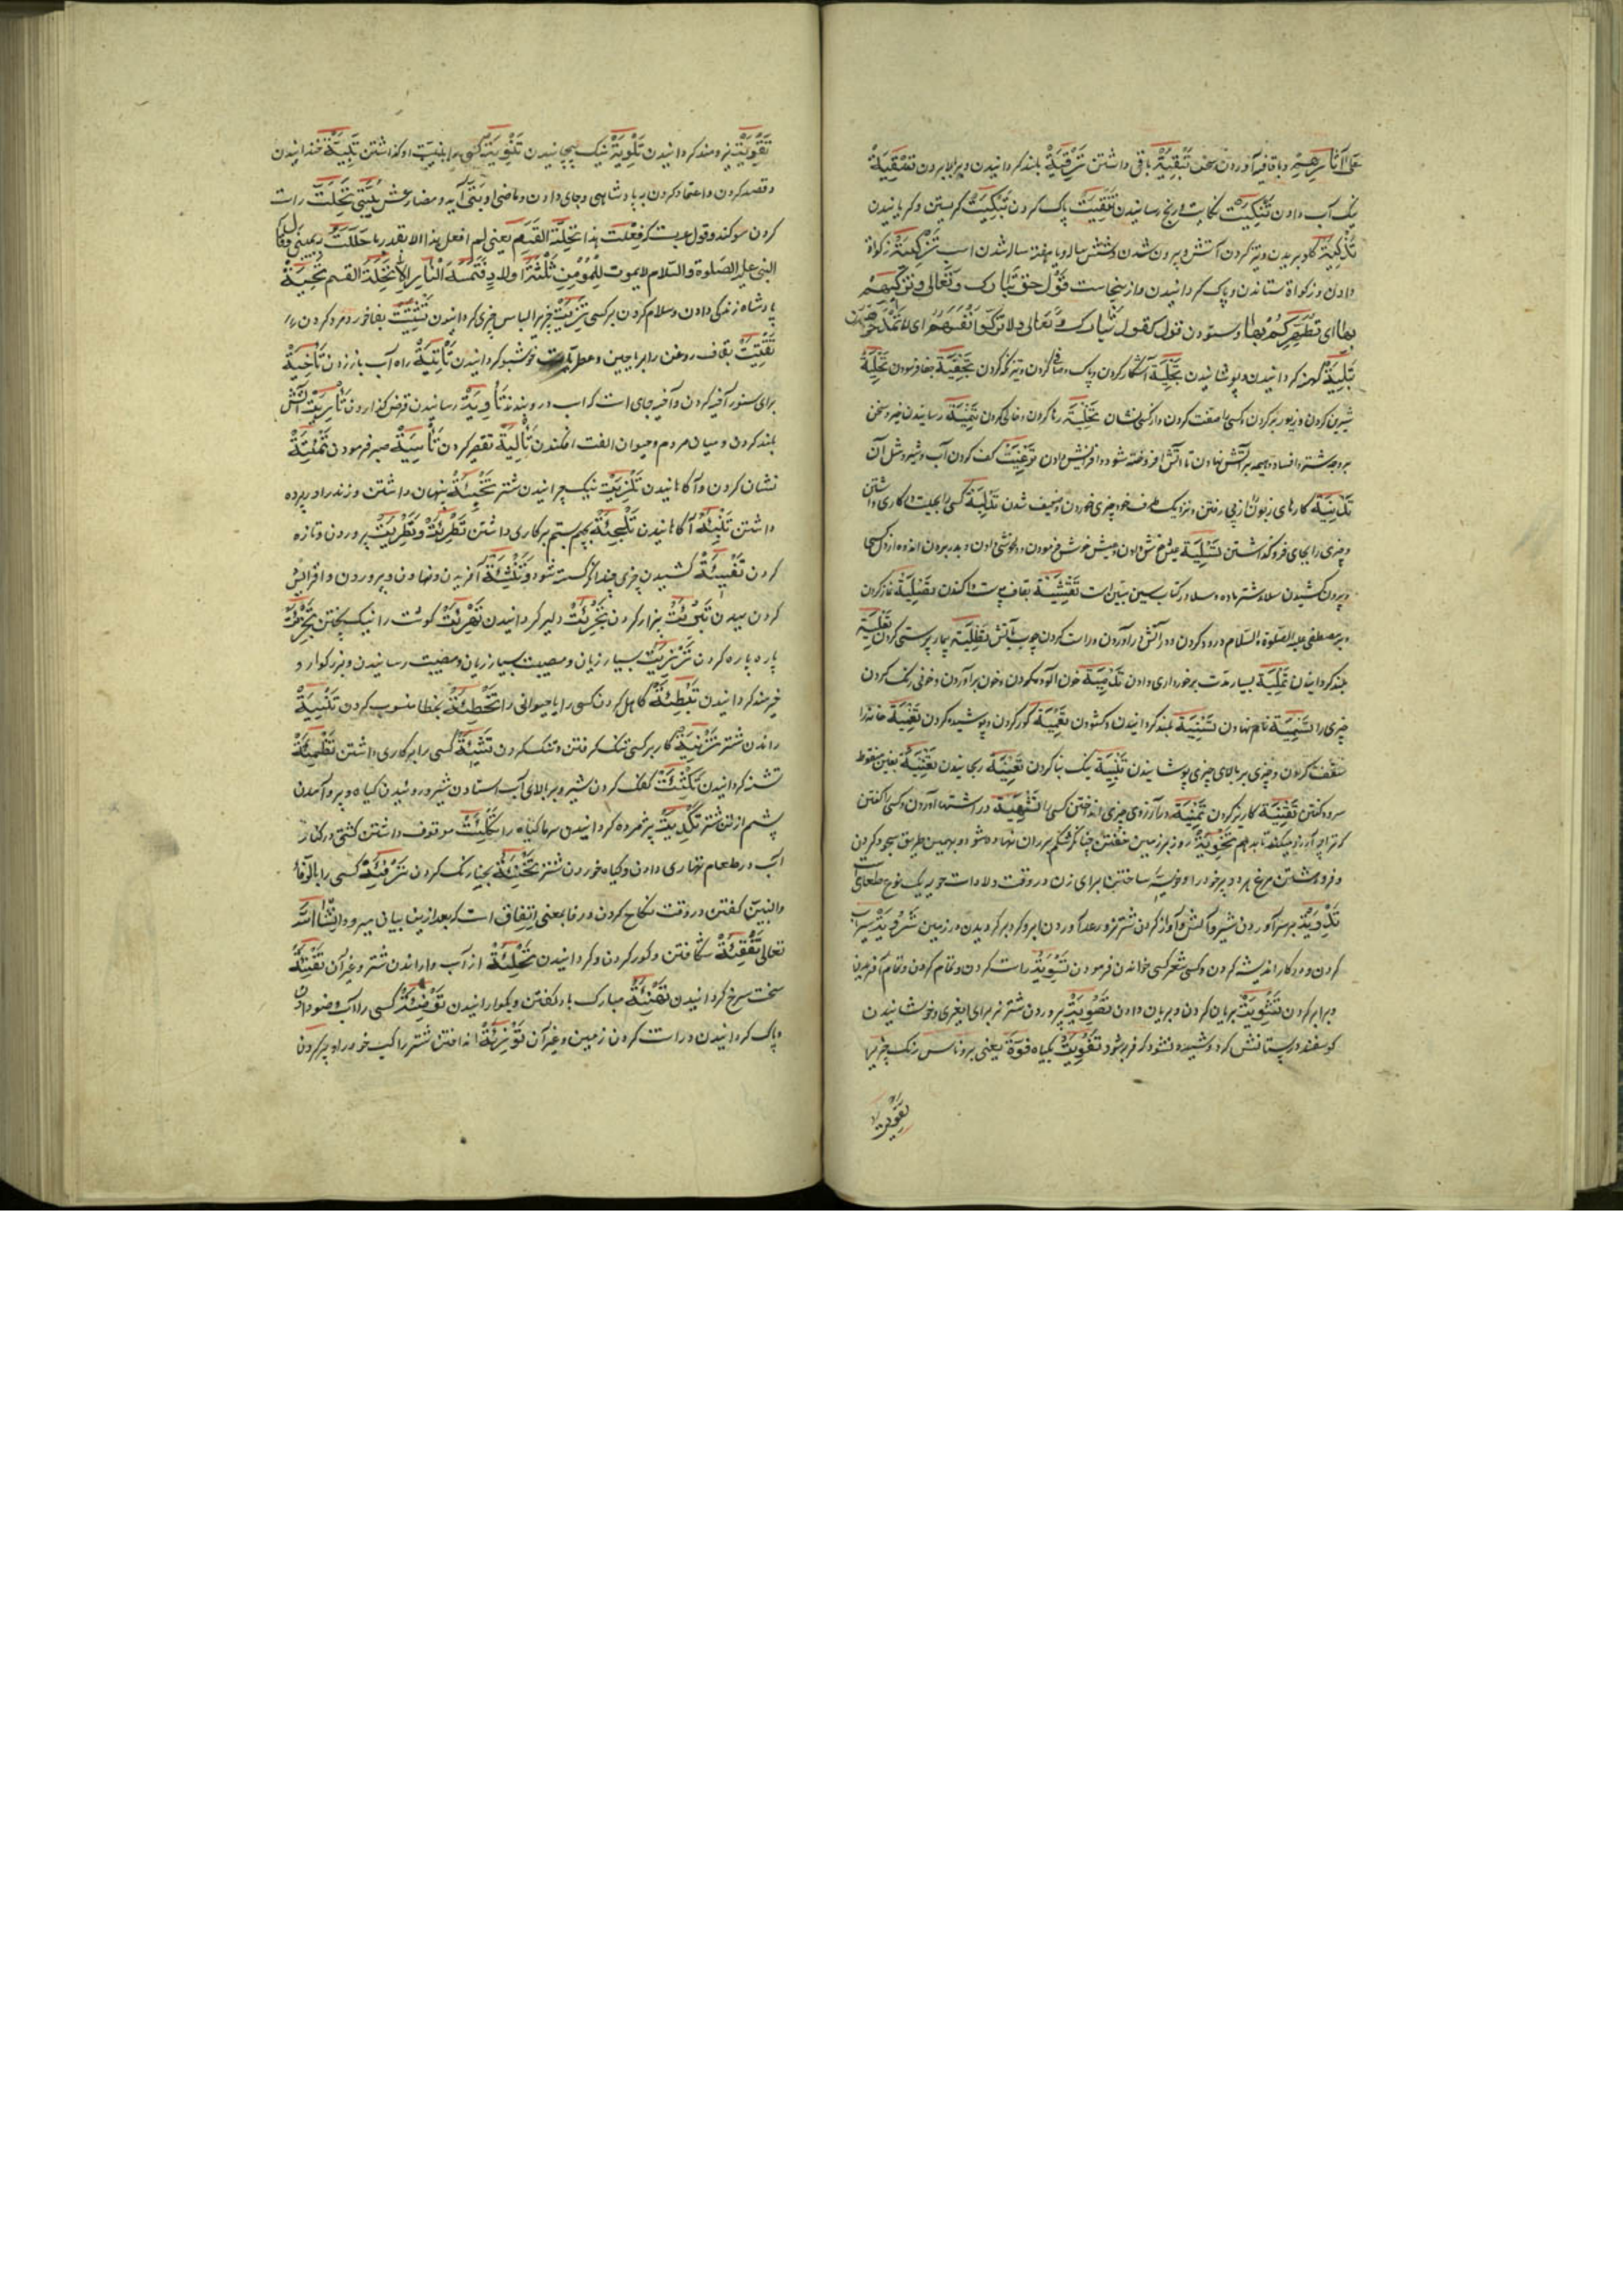 علی آثارهم وبا قافیه آوردن سخن تَبْقِیَةْ باقی داشتن تَرْقِیَةْ بلند کردانیدن وبر بالا بردن تَسْقِیَةْ
نیک آب دادن تَنْکِیَتْ نکایت ورنج رسانیدن تَنْقِیَتْ پاک کردن تَبْکِیَتْ کریستن وکریانیدن
تَذْکِیَةْ کلو بریدن وتیز کردن آتش وبیرون شدن شتر شش ساله ویا هفت ساله شدن اسب تَزْکِیَةْ زکواة
دادن وزکواة ستاندن وپاک کردانیدن وازینجاست قول حق تبارک وتعالی وتزکیهم
بها ای تطهرهم بها وستودن قول کقوله تبارک وتعالی ولا تزکوا انفسهم ای لا تمدحوهن
تَبْلِیَةْ کهنه کردانیدن وپوشانیدن تَجْلِیَةْ آشکار کردن وپاک وصافی کردن وتیز نکه کردن تَجْفِیَةْ جفا فرمودن تَحْلِیَةْ
شیرین کردن وزیور بر کردن وکسی را صفت کردن واز کسی نشان تَخْلِیَةْ رها کردن وخالی کردن تَنْمِیَةْ رسانیدن خبر وسخن
بر وجه شر وافساد وهیمه بر آتش نهادن تا آتش افروخته شود وافزایش دادن تَرْغِیَتْ کف کردن آب وشیر ومثل آن
تَدْنِیَةْ کارهای زبون را از پی رفتن ونزدیک طرف خود چیزی خوردن وضعیف شدن تَدْلِیَةْ کسی را بحیلت در کاری داشتن
وچیزی را بجای فرو گذاشتن تَسْلِیَةْ عیش خوش دادن وعیش خوش فرمودن ودلخوشی دادن وبدر بردن اندوه از دل کسی
وبیرون کشیدن سلاء شتر ماده وسلا در کتاب سین مبین است تَقْشِیَةْ بقاف پوست واکندن تَصْلِیَةْ نماز کردن
وبر مصطفی علیه الصلوة والسلام درود کردن ودر آتش درآوردن وراست کردن چوب بآتش تَطْلِیَةْ بیمار پرستی کردن تَعْلِیَةْ
بلند کردانیدن تَمْلِیَةْ بسیار مدت برخورداری دادن تَدْمِیَةْ خون آلوده کردن وخون برآوردن وخونی رنک کردن
چیزی را تَسْمِیَةْ نام نهادن تَسْنِیَةْ بلند کردانیدن وکشودن تَعْمِیَةْ کور کردن وپوشیده کردن تَغْمِیَةْ خانه را
سقف کردن وچیزی بر بالای چیزی پوشانیدن تَبْنِیَةْ نیک بنا کردن تَعْنِیَةْ رنجانیدن تَغْنِیَةْ بغین منقوط
سرود کفتن تَقْنِیَةْ کاریز کردن تَمْنِیَةْ در آرزوی چیزی انداختن کسی را تَشْهِیَةْ در اشتها آوردن وکسی را کفتن
که ترا چه آرزو میکند تا بدهم تَخْوِیَةْ روز بر زمین خفتن چنانکه شکم بر ران نهاده شود وبهمین طریق سجود کردن
وفروهشتن مرغ هر دو پر خود را وخویه ساختن برای زن در وقت ولادات خویه یک نوع طعامی است
تَدْوِیَةْ بر سر آوردن شیر وآتش وآواز کردن شتر نر ورعد آوردن ابر وکرد بر کردیدن در زمین تَرْوِیَةْ سیراب
کردن ودر کار اندیشه کردن وکسی شعر کسی خواندن فرمودن تَسْوِیَةْ راست کردن وتمام کردن وتمام آفریدن
وبرابر کردن تَشْوِیَةْ بریان کردن وبریان دادن تَصْوِیَةْ پروردن شتر نر برای ایغری وخوشانیدن
کوسفند در پستانش که دوشیده نشود که فربه شود تَفْوِیَتْ بکیاه فوة یعنی بروناس رنک چیز را
تَقْوِیَتْ
تَقْوِیَتْ نیرومند کردانیدن تَلْوِیَةْ نیک پیچانیدن تَنْوِیَتْ کسی را بنیت او کذاشتن تَبْیِیَةْ خندانیدن
وقصد کردن واعتماد کردن به پادشاهی وجای دادن وماضی او بَیّی آید ومضارعش یُبَیّی تَحِلَّتْ راست
کردن سوکند وقول عربست که فعلت هذا تحلة القسم یعنی لم افعل هذا الا بقدر ما حللت به یمینی وقال
النبی علیه الصلوة والسلام لا یموت للمؤمن ثلثة اولاد فتمسه النار الا تحلة القسم تَحِیَّةْ
پادشاه زندکی دادن وسلام کردن بر کسی تَزْیِیَتْ چیزی را لباس چیزی کردانیدن تَفْتِیَتْ بفا خورد مرد کردن
تَقْتِیَتْ بقاف روغن را بریاحین وعطریات خوشبو کردانیدن تَأْتِیَةْ راه آب باز زدن تَأْخِیَةْ
برای ستور آخیه کردن وآخیه جای است که اسب درو بندند تَأْدِیَةْ رسانیدن قرض کذاردن تَأْرِیَتْ آتش
بلند کردن ومیان مردم وحیوان الفت افکندن تَأْلِیَةْ تقصیر کردن تَأْسِیَةْ صبر فرمودن تَنْمِئَةْ
نشان کردن وآکاهانیدن تَلْزِیَتْ نیک چرانیدن شتر تَخْبِئَةْ پنهان داشتن وزنرا در پرده
داشتن تَنْبِئَةْ آکاهانیدن تَلْجِئَةْ بهم ستم بر کاری داشتن تَطْرِئَةْ وتَطْرِیَتْ پروردن وتازه
کردن تَفْسِئَةْ کشیدن چیزی چندانکه کسسته شود تَنْشِئَةْ آفریدن ونهادن وپروردن وافزایش
کردن سیدن تَبْرِئَتْ بیزار کردن تَجْرِئَتْ دلیر کردانیدن تَهْرِئَتْ کوشت را نیک پختن تَجْزِئَةْ
پاره پاره کردن تَرْزِیَتْ بسیار زیان ومصیبت بسیار زیان ومصیبت رسانیدن وبزرکوار و
خیرمند کردانیدن تَبْطِئَةْ کاهل کردن کسی را یا حیوانی را تَخْطِئَةْ بخطا منسوب کردن
راندن شتر تَزْنِیَةْ کار بر کسی تنک کرفتن وتنک کردن تَشْیِئَةْ کسی را بر کاری داشتن تَظْمِئَةْ
تشنه کردانیدن تَکْثِئَتْ کفک کردن شیر وبر بالای آب استادن شیر وروئیدن کیاه وبر آمدن
پشم از تن شتر تَکْدِیَتْ پژمرده کردانیدن سرما کیاه را تَکْلِئَتْ موقوف داشتن کشتی در کنار
آب ودر طعام نهاری دادن وکیاه خوردن شتر تَحْنِئَةْ بحنا رنک کردن تَرْفِئَةْ کسی را بالرفاء
والبنین کفتن در وقت نکاح کردن ورفا بمعنی اتفاق است که بعد ازین بیان میرود ان شاء الله
تعالی تَفْقِئَةْ شکافتن وکور کردن وکردانیدن تَحْلِئَةْ از آب واراندن شتر وغیر آن تَقْنِئَةْ
سخت سرخ کردانیدن تَهْنِئَةْ مبارک باد کفتن وبکوارانیدن تَوْضِئَةْ کسی را آب وضو دادن
وپاک کردانیدن وراست کردن زمین وغیر آن تَوْزِئَةْ انداختن شتر راکب خود را وپر کردن